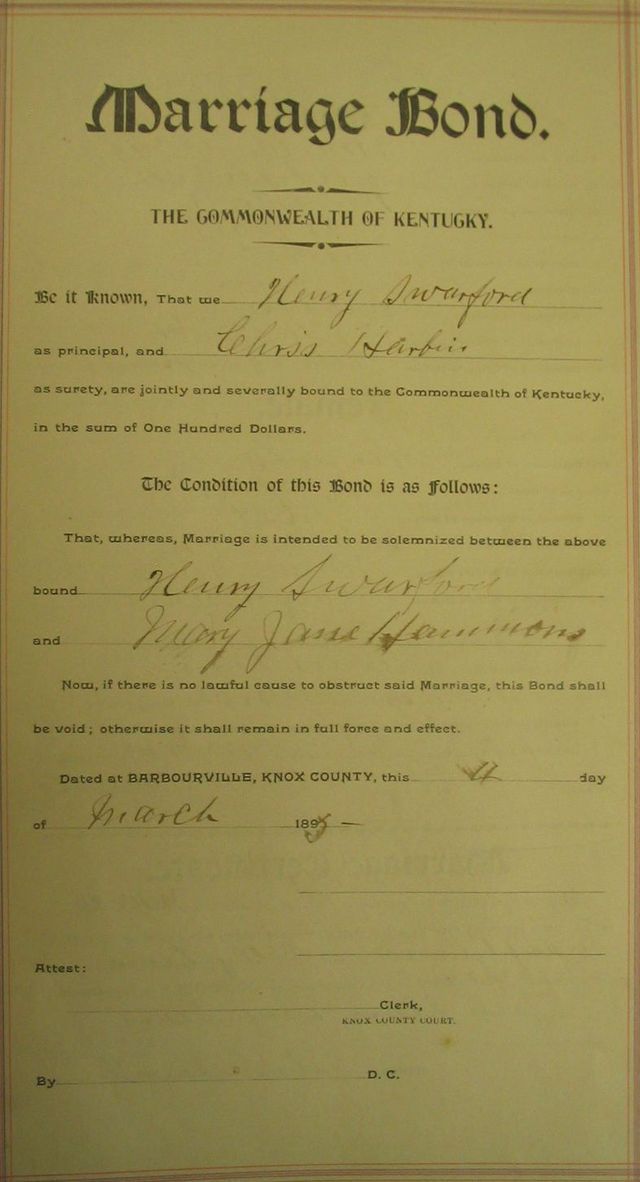 Marriage Bond.
THE COMMONWEALTH OF KENTUCKY.
Be it Known, That we Henry Swarford
as principal, and Chriss Harbin
as surety, are jointly and severally bound to the Commonwealth of Kentucky,
in the sum of One Hundred Dollars.
The Condition of this Bond is as Follows:
That, whereas, Marriage is intended to be solemnized between the above
bound Henry Swarford
and Mary Jane Hammons
Now, if there is no lawful cause to obstruct said Marriage, this Bond shall
be void; otherwise it shall remain in full force and effect.
Dated at BARBOURVILLE, KNOX COUNTY, this 4 day
of March 1895
Attest:
Clerk,
KNOX COUNTY COURT.
By D. C.